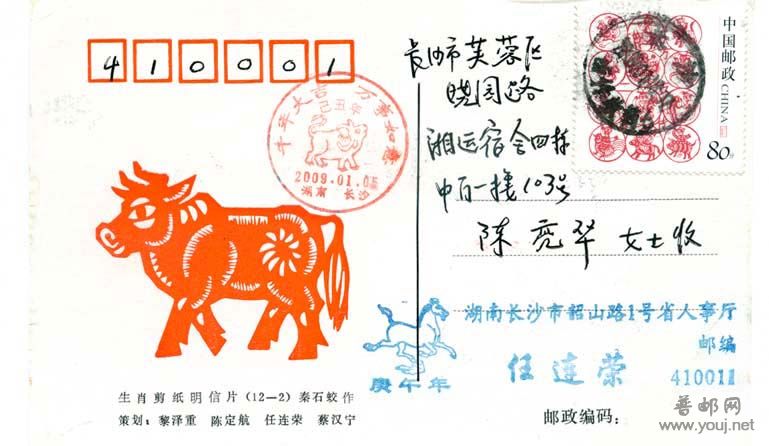 410001
长沙市芙蓉区
晓园路
湘运宿舍四栋
中百一楼103号
陈亮华 女士收
中国邮政
CHINA
80分
牛年大吉 万事如意
己丑年
2009.01.05
湖南 长沙
湖南长沙市韶山路1号省人事厅
邮编
任连荣 410011
庚午年
生肖剪纸明信片(12—2)秦石蛟作
策划:黎泽重 陈定航 任连荣 蔡汉宁
邮政编码:
普邮网
www.youj.net